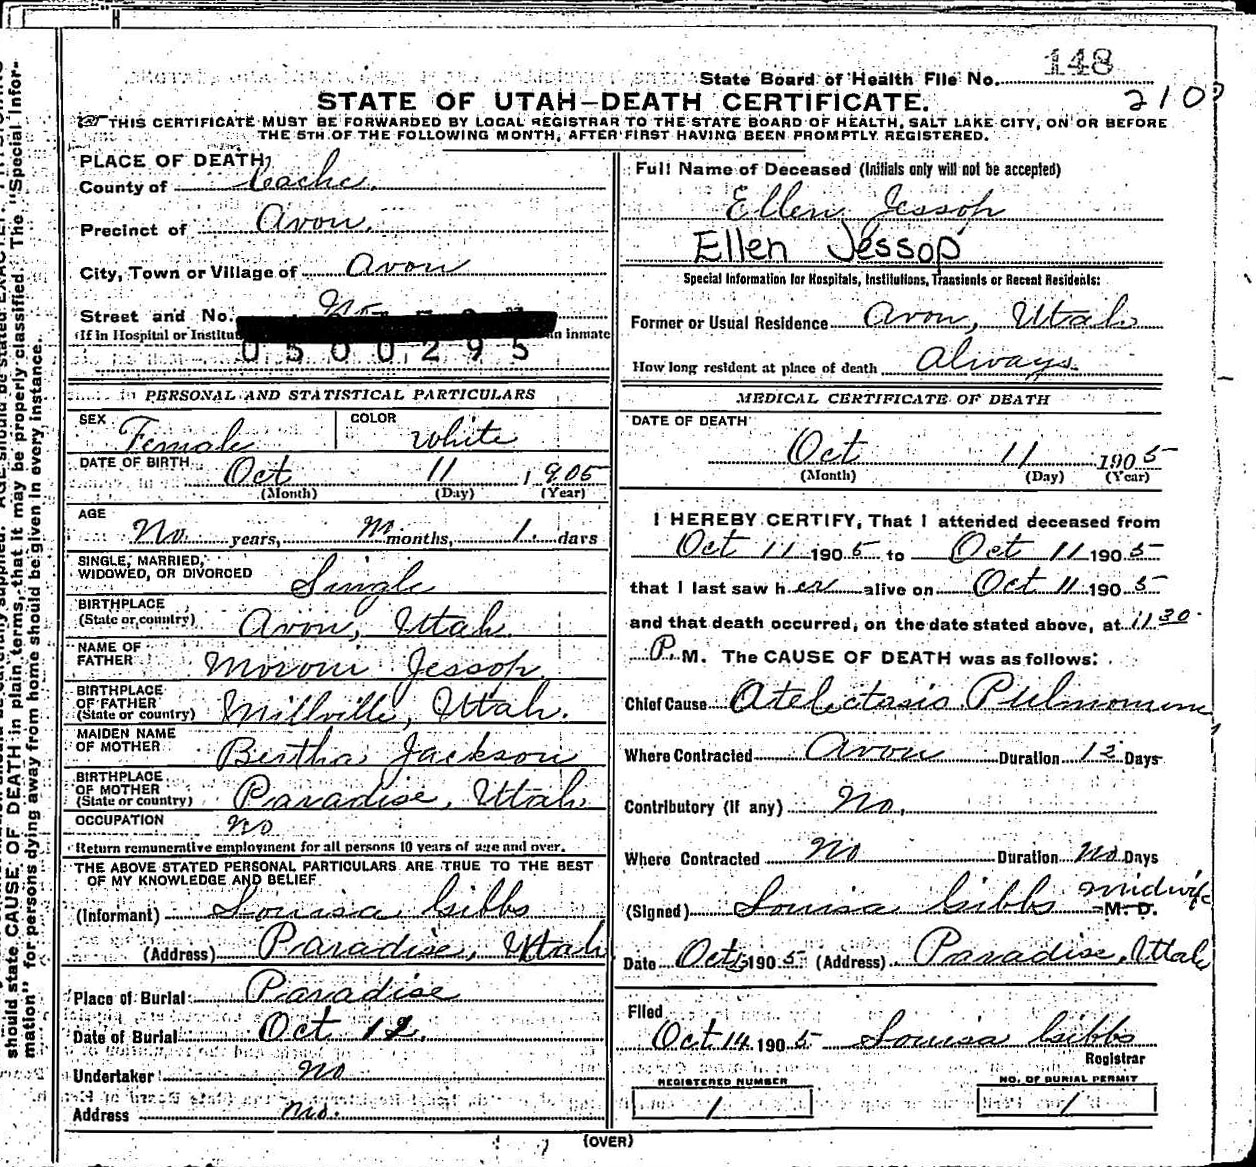 148
State Board of Health File No.
210
STATE OF UTAH—DEATH CERTIFICATE.
THIS CERTIFICATE MUST BE FORWARDED BY LOCAL REGISTRAR TO THE STATE BOARD OF HEALTH, SALT LAKE CITY, ON OR BEFORE
THE 5TH OF THE FOLLOWING MONTH, AFTER FIRST HAVING BEEN PROMPTLY REGISTERED.
PLACE OF DEATH,
County of Cache.
Precinct of Avon.
City, Town or Village of Avon
Street and No. No
(If in Hospital or Institut in inmate
0500295
PERSONAL AND STATISTICAL PARTICULARS
SEX Female COLOR White
DATE OF BIRTH Oct 11 1905
(Month) (Day) (Year)
AGE
No years, No months, 1. days
SINGLE, MARRIED,
WIDOWED, OR DIVORCED Single
BIRTHPLACE
(State or country) Avon, Utah
NAME OF
FATHER Moroni Jessop
BIRTHPLACE
OF FATHER
(State or country) Millville, Utah.
MAIDEN NAME
OF MOTHER Bertha Jackson
BIRTHPLACE
OF MOTHER
(State or country) Paradise, Utah
OCCUPATION No
Return remunerative employment for all persons 10 years of age and over.
THE ABOVE STATED PERSONAL PARTICULARS ARE TRUE TO THE BEST
OF MY KNOWLEDGE AND BELIEF
(Informant) Louisa Gibbs
(Address) Paradise, Utah
Place of Burial Paradise
Date of Burial Oct 12.
Undertaker No
Address No.
Full Name of Deceased (Initials only will not be accepted)
Ellen Jessop
Ellen Jessop
Special Information for Hospitals, Institutions, Transients or Recent Residents:
Former or Usual Residence Avon, Utah
How long resident at place of death Always.
MEDICAL CERTIFICATE OF DEATH
DATE OF DEATH
Oct 11 1905
(Month) (Day) (Year)
I HEREBY CERTIFY, That I attended deceased from
Oct 11 1905 to Oct 11 1905
that I last saw her alive on Oct 11 1905
and that death occurred, on the date stated above, at 11 30
P. M. The CAUSE OF DEATH was as follows:
Chief Cause Atelectasis Pulmonum
Where Contracted Avon Duration Days
Contributory (if any) No,
Where Contracted No Duration No Days
(Signed) Louisa Gibbs Midwife M. D.
Date Oct 1905 (Address) Paradise, Utah
Filed
Oct 14 1905 Louisa Gibbs
Registrar
REGISTERED NUMBER
1
NO. OF BURIAL PERMIT
1
(OVER)
should state CAUSE OF DEATH in plain terms, that it may be properly classified. The "Special Infor-
mation" for persons dying away from home should be given in every instance.